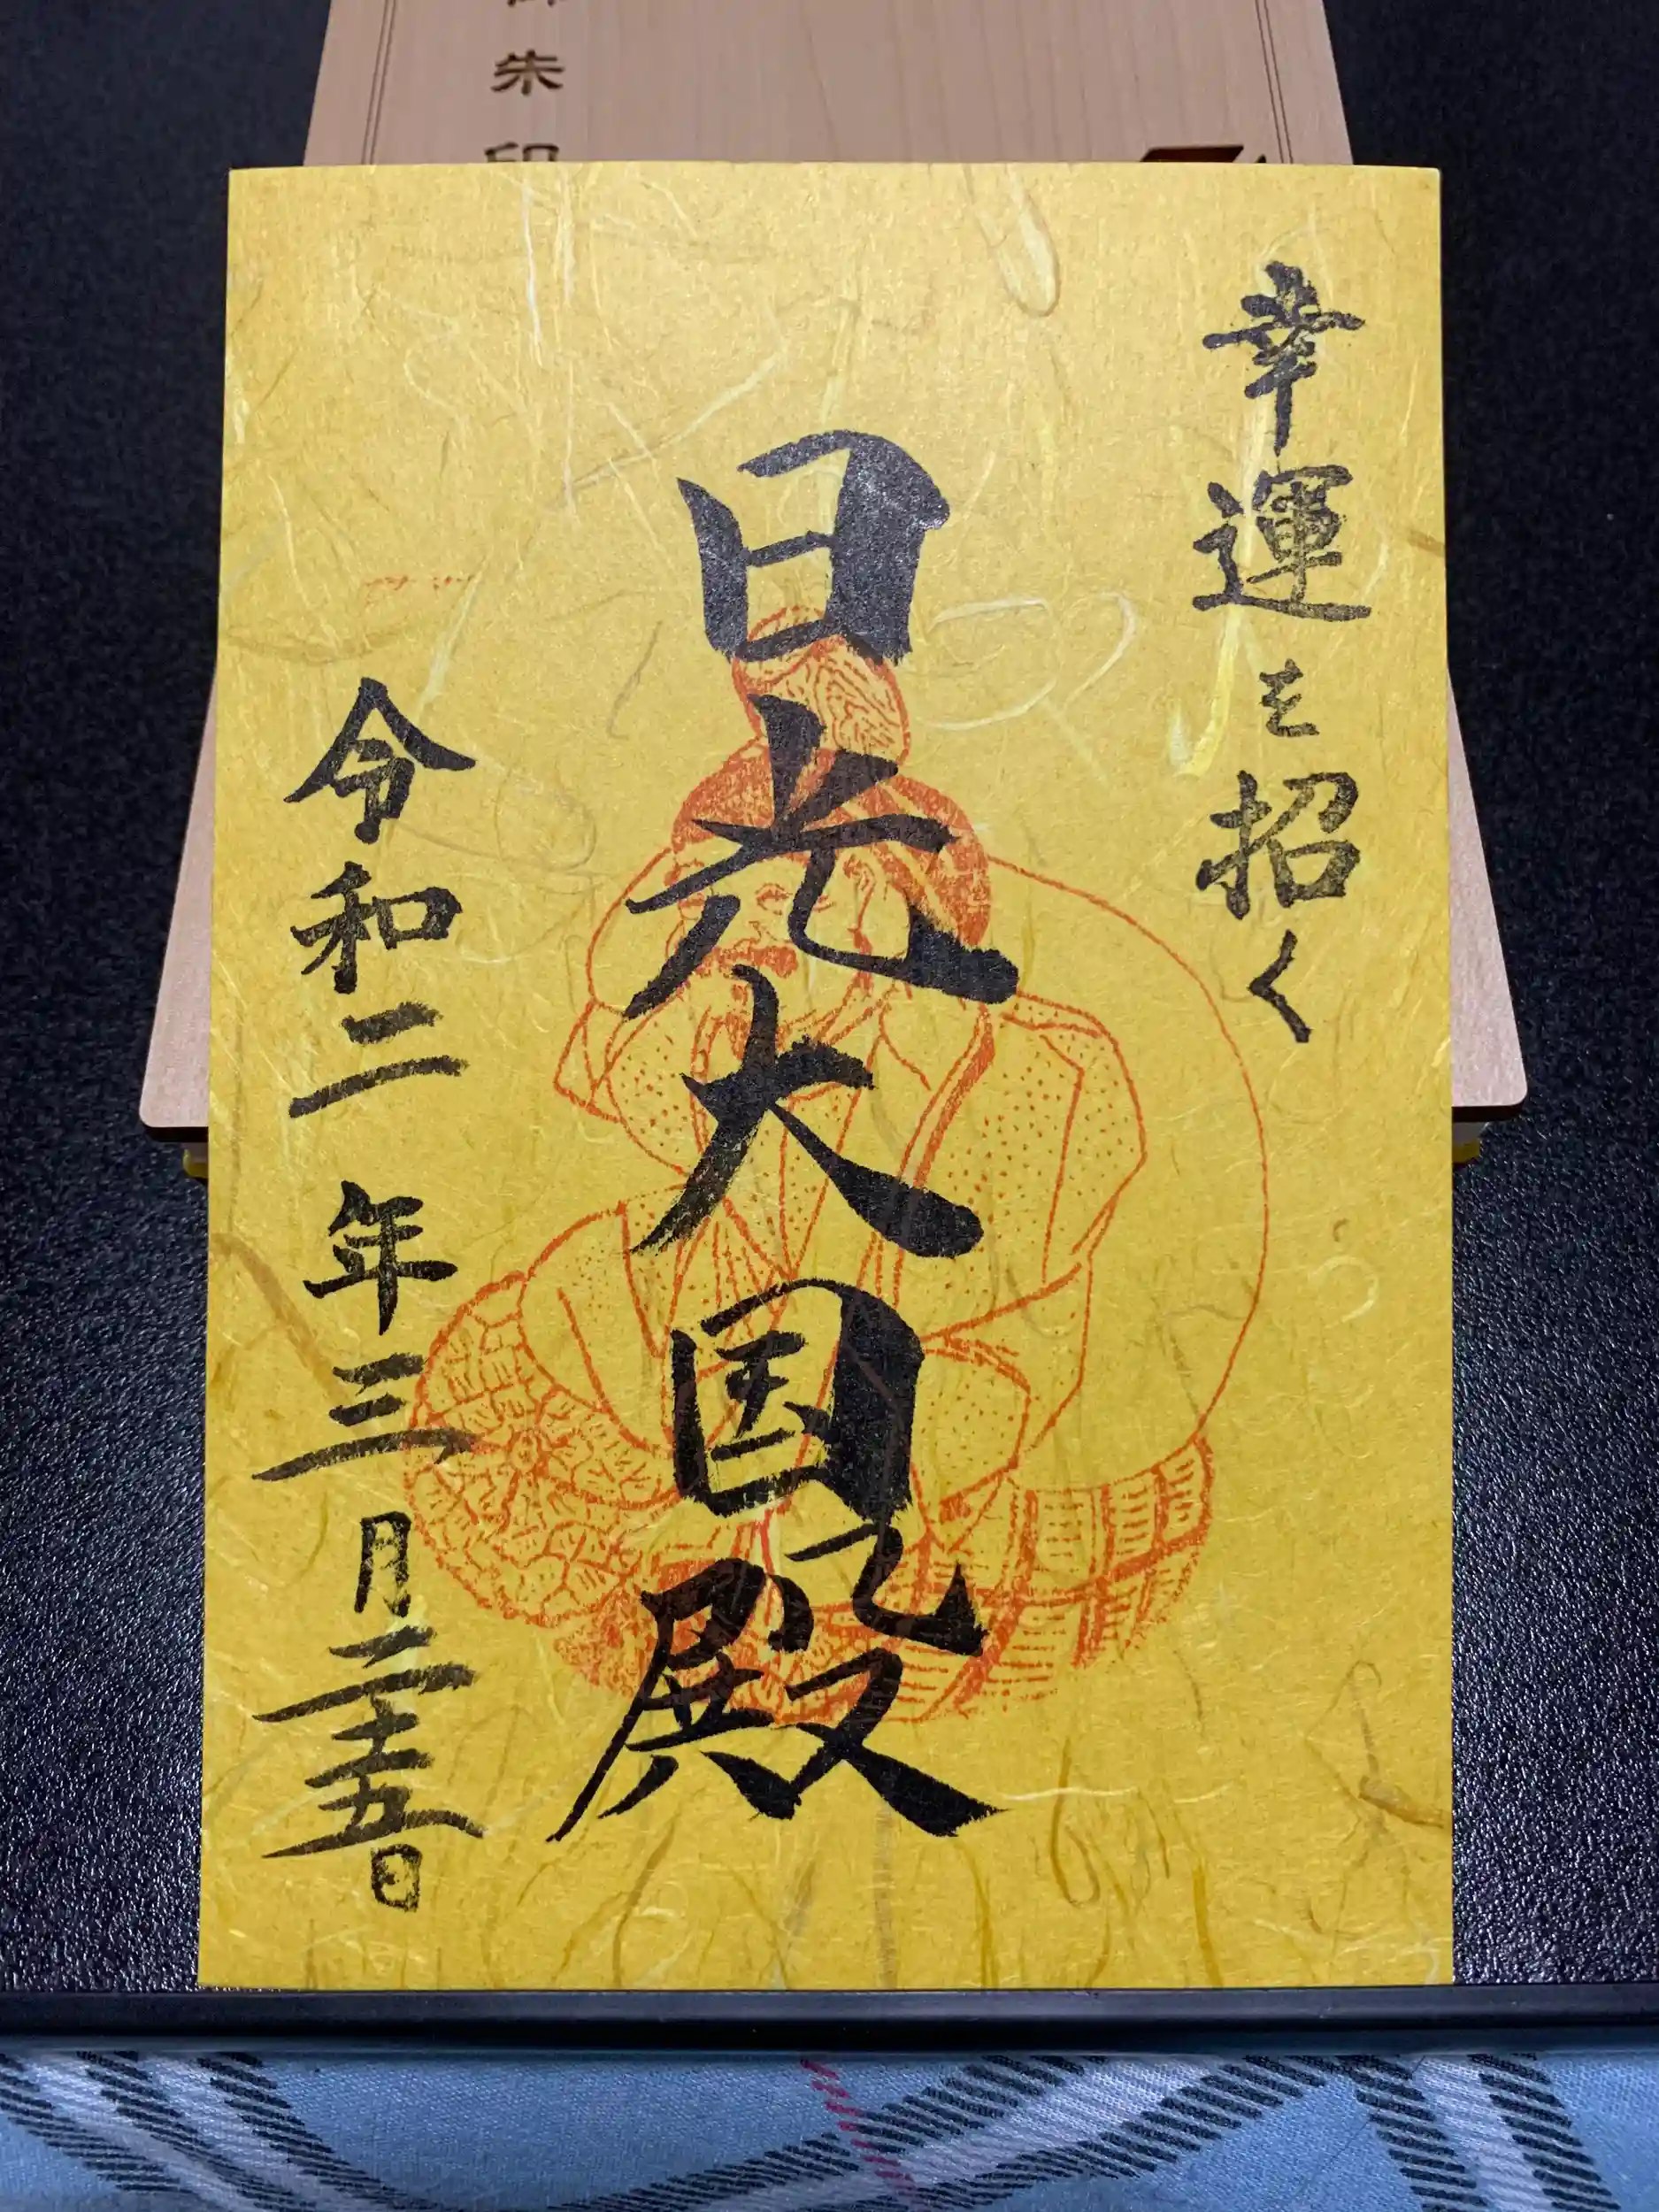 朱印
幸運を招く
日光大国殿
令和二年三月二十五日